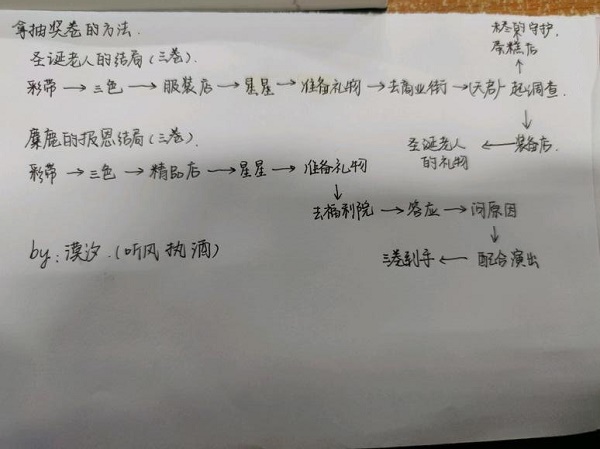 拿抽奖卷的方法.
圣诞老人的结局(三卷).
冬的守护
蛋糕店
彩带→三色→服装店→星星→准备礼物→去商业街→(天君)一起调查.
圣诞老人的礼物←装备店.
麋鹿的报恩结局(三卷).
彩带→三色→精品店→星星→准备礼物
去福利院→答应→问原因
三卷到手←配合演出
by:漠汐.(听风执酒)